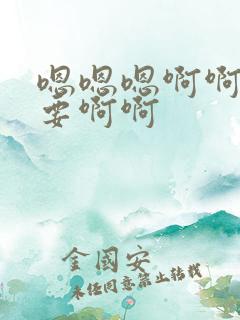 嗯嗯嗯啊啊
要啊啊
金國安
未经同意禁止转载